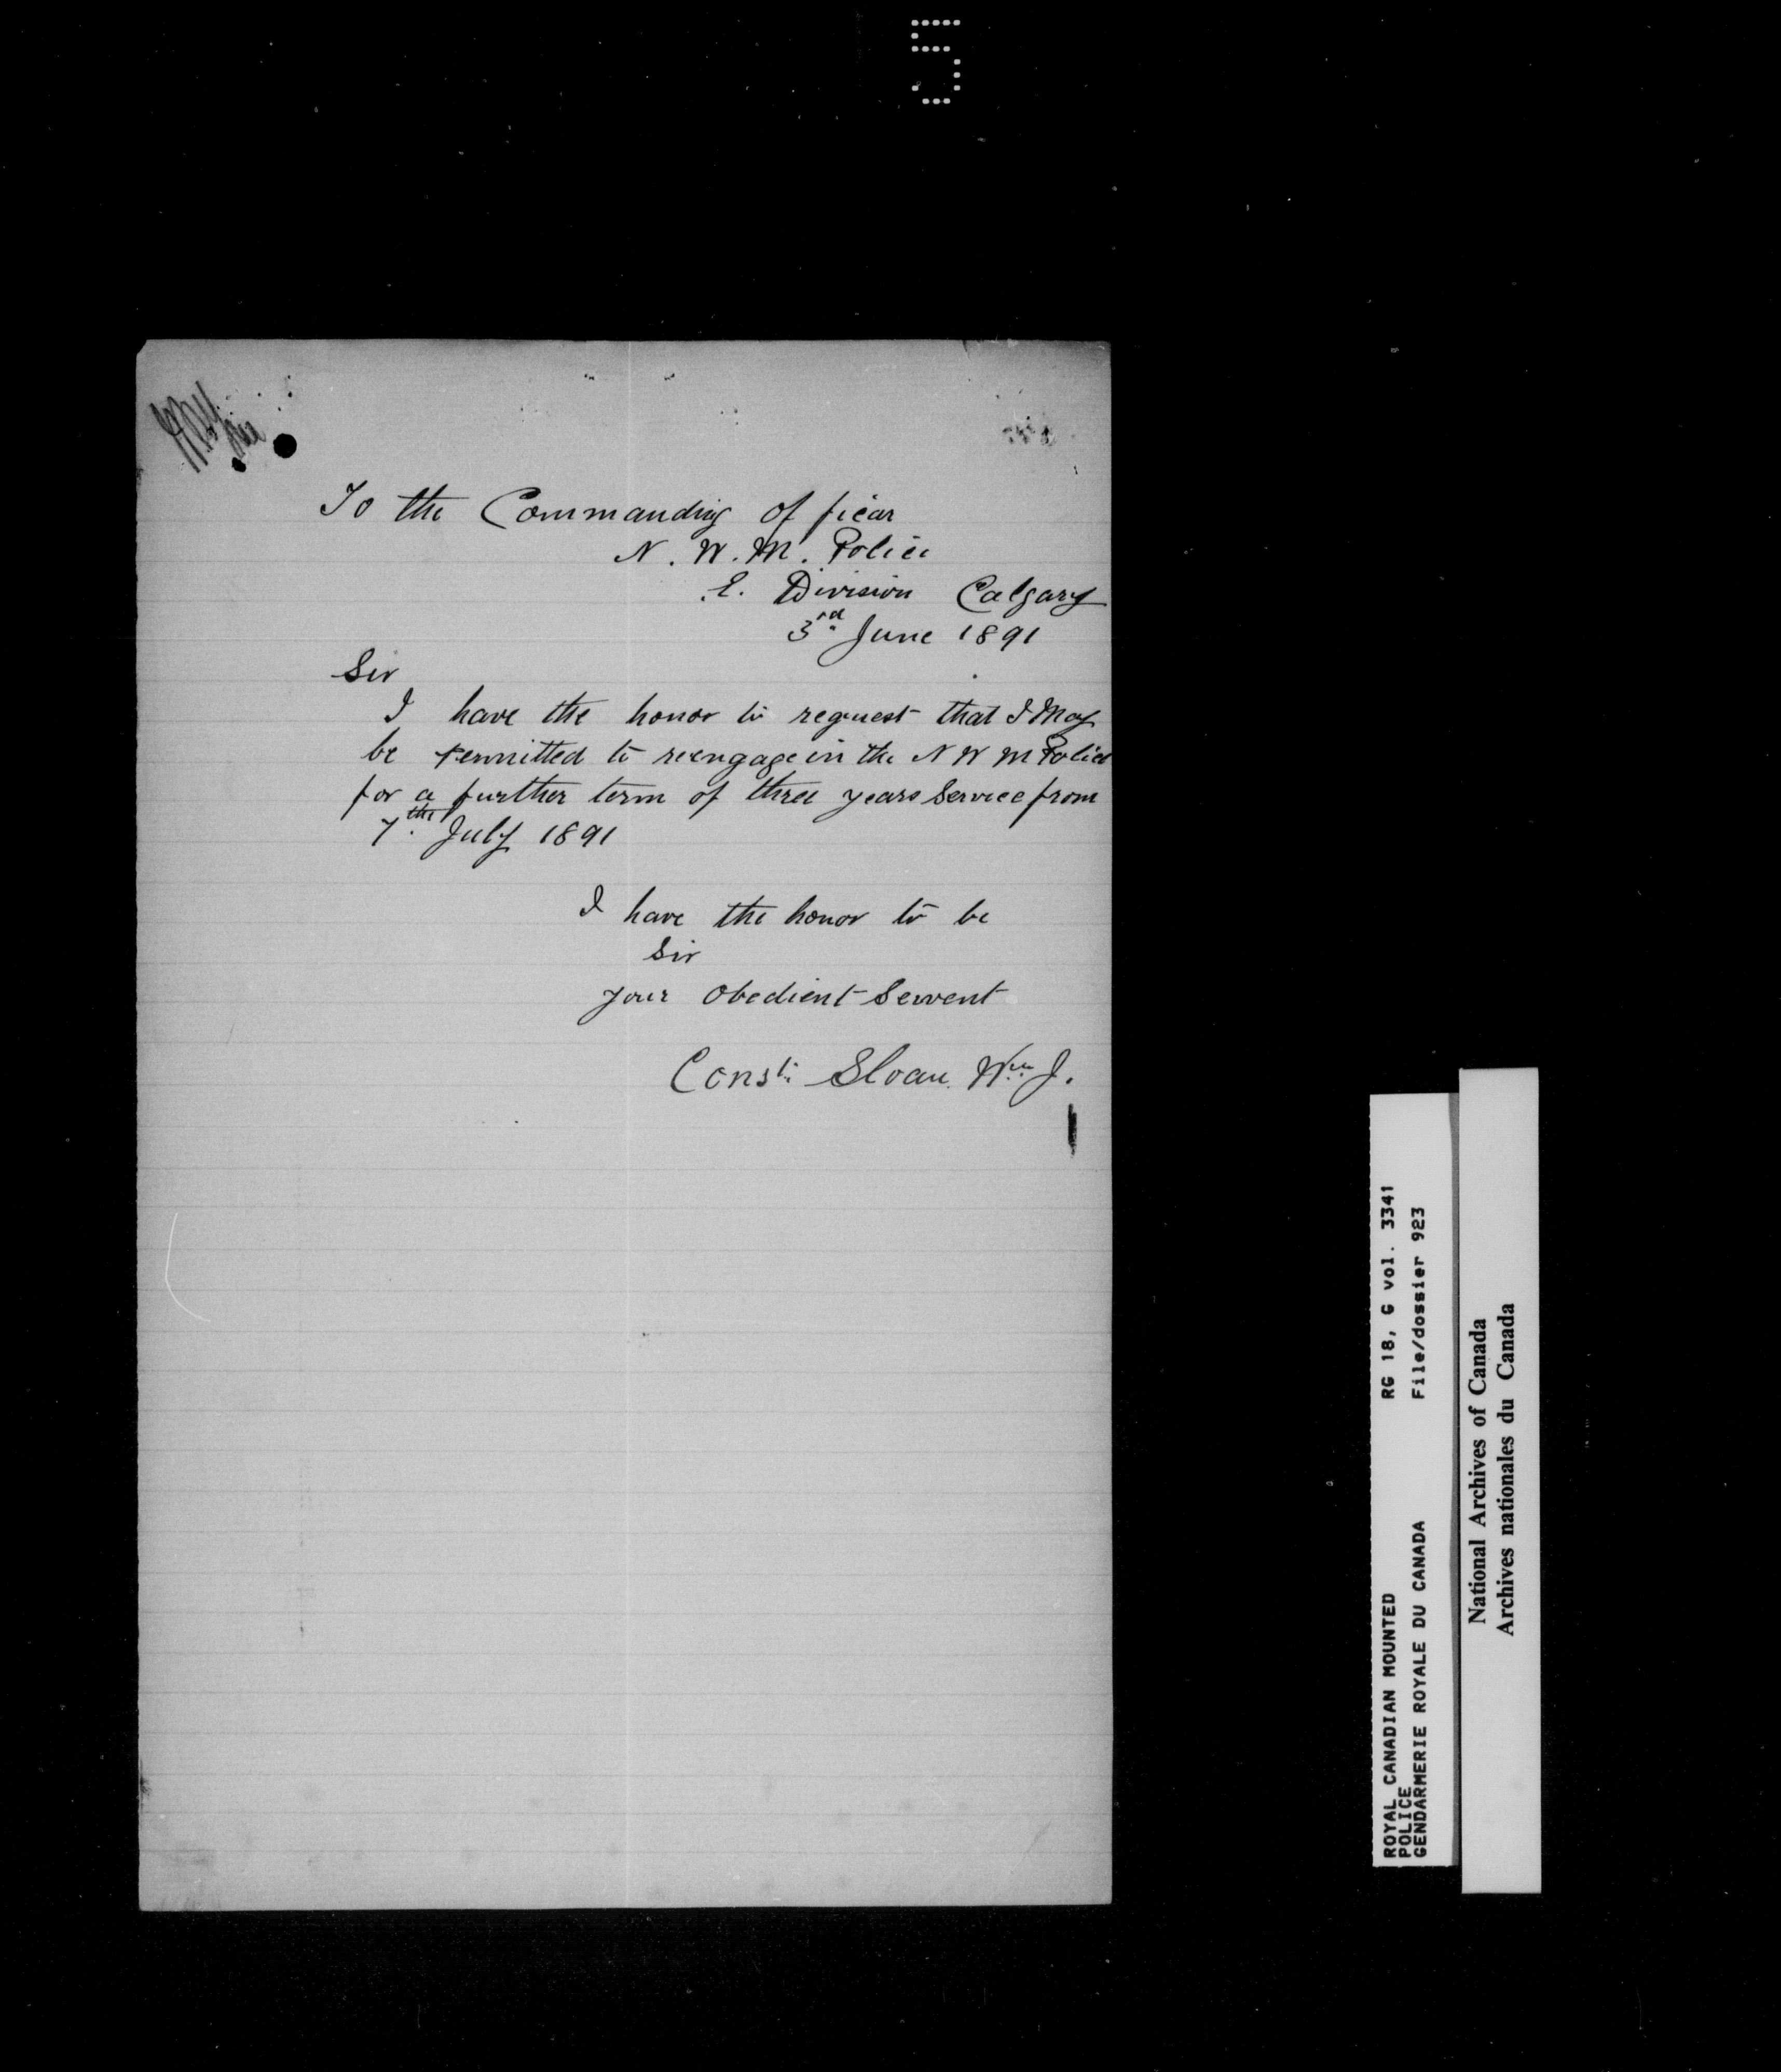 5
To the Commanding of ficar
N. W. M. Police
E. Division Calgary
3rd June 1891
Sir
I have the honor to request that I May
be permitted to reengage in the N W M Police
for a further term of three years Service from
7th July 1891
I have the honor to be
Sir
your Obedient Servent
Const: Sloan Wm J.
ROYAL CANADIAN MOUNTED RG 18, G vol. 3341
POLICE File/dossier 923
GENDARMERIE ROYALE DU CANADA
National Archives of Canada
Archives nationales du Canada